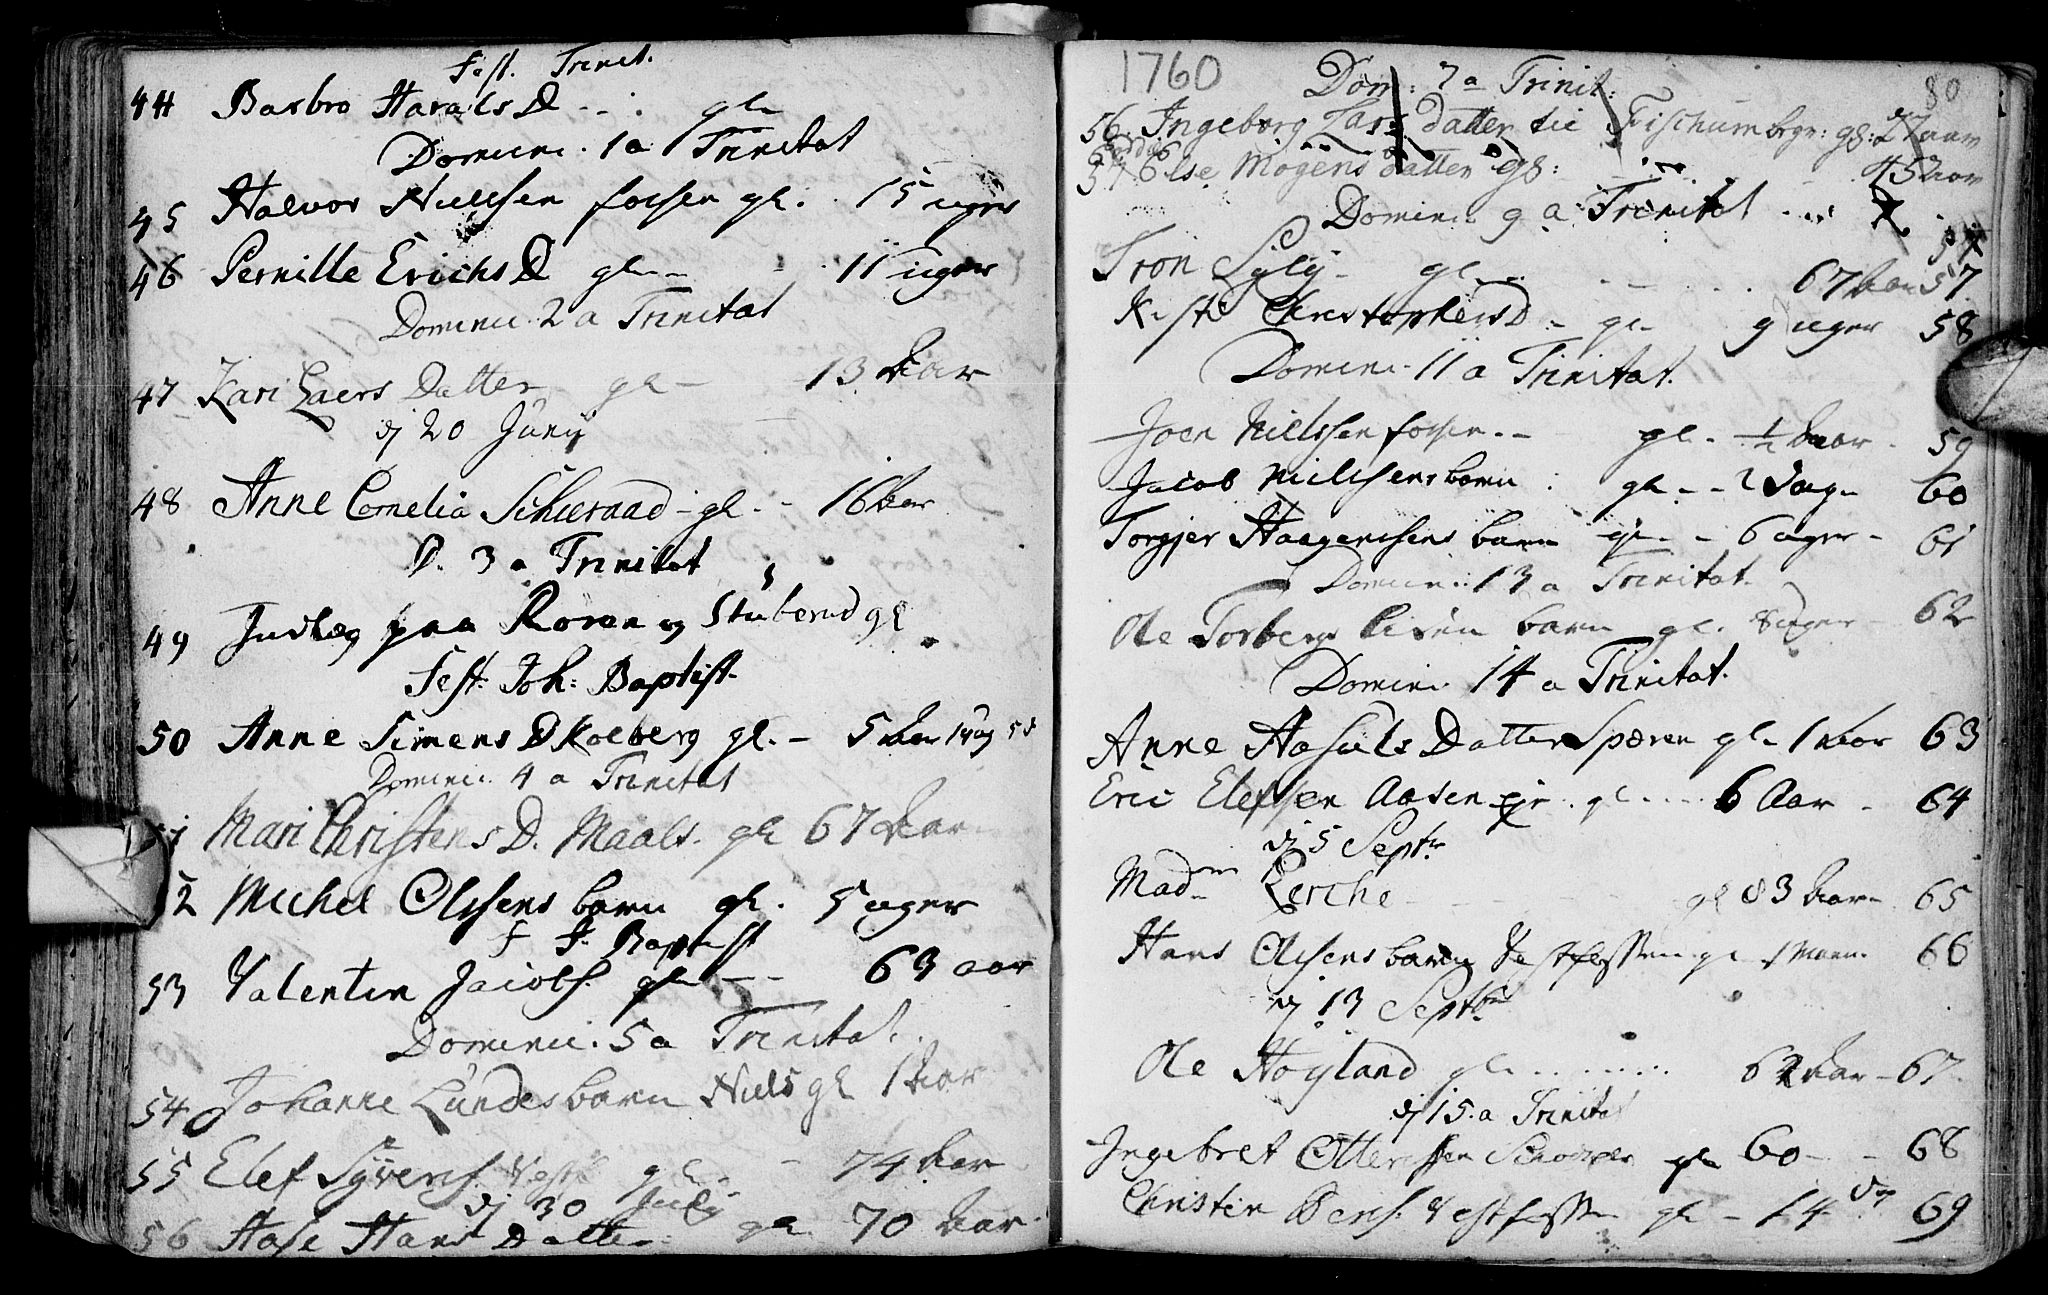 Fest. Trinit.
44 Barbro Harals D - . gl
Domini. 1 a Trinitat
45 Halvor Nielsen fossen gl. 15 uger
46 Pernille Erichs D gl. - 11 uger
Domini. 2 a Trinitat
47 Kari Laers Datter gl - 13 Aar
dj 20 Junij
48 Anne Cornelia Schieraad - gl. - 16 Aar
D. 3 a Trinitat
49 Indlæg paa Roren og Stuberud gl
Fest. Joh: Baptist.
50 Anne Simens D Kolberg gl. - 5 Aar
Domini. 4 a Trinitat
Mari Christens D. Maals. gl 67 Aar
52 Michel Olsens barn gl. 5 uger
F J. Baptist
53 Valentin Jacobs. gl - - 63 aar
Dominic. 5 a Trinitat.
54 Johanne Lundes barn Niels gl 1 Aar
55 Elef Syvers. Vestf. gl. - 74 Aar
dj 30 July
56 Aase Hans Datter gl. 70 Aar.
1760 80
Dom: 7 a Trinit:
56. Ingeborg Lars Datter die Fischum begr: gl: 27 aar
57 Else Mogens datter gl: 45 aar
Domini 9 a Trinitat
Tron Sylij - gl. 67 Aar 57
Kisti Christophers D - gl - 9 uger 58
Domini. 11 a Trinitat.
Joen Nielssen fossen. - gl. 1/2 Aar - 59
Jacob Nielsens barn gl - - 2 Dage 60
Torgjer Haagensens barn gl. - 6 uger - 61
Domini. 13 a Trinitat.
Ole Torbers barn gl. 8 uger - 62
Domini. 14 a Trinitat.
Anne Aasuls Datter Spæren gl - 1 Aar 63
Eric Elefsen Aasen gl. 6 Aar - 64
dj 5 Septr
Madm Lerche gl 83 Aar - 65
Hans Olsens barn Vestfossen gl 1 Maan. 66
dj 13 Septbr
Ole Hoyland gl. 62 Aar - 67
dj 15. a Trinitat
Ingebret Ottersen gl 60 - - 68
Christen Bers. Vestfossen gl - 14 69